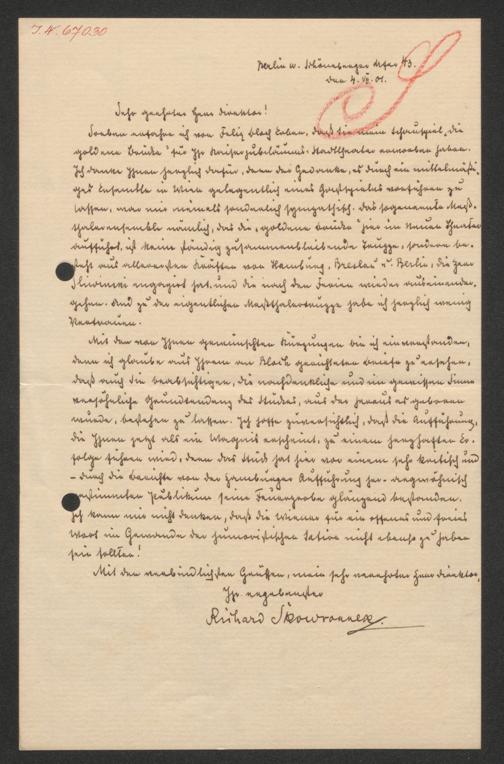 I.N. 67030
Berlin W. Schöneberger Ufer 43.
den 4. VI. 01.
Sehr geehrter Herr Direktor!
Soeben erfahre ich von Felix Bloch Erben, daß Sie mein Schauspiel, „die
goldene Brücke“ für Ihr Kaiserjubiläums-Stadttheater erworben haben.
Ich danke Ihnen herzlich dafür, denn der Gedanke, es durch ein mittelmäßi-
ges Ensemble in Wien gelegentlich eines Gastspieles vorführen zu
lassen, war mir niemals sonderlich sympathisch. Das sogenannte Meß-
thalerensemble nämlich, das die „goldene Brücke“ hier im Neuen Theater
aufführt, ist keine ständig zusammenbleibende Truppe, sondern be-
steht aus allerersten Kräften von Hamburg, Breslau u. Berlin, die Herr
engagirt hat und die nach den Ferien wieder auseinander-
gehen. Und zu der eigentlichen Meßthalertruppe habe ich herzlich wenig
Vertrauen.
Mit den von Ihnen gewünschten Kürzungen bin ich einverstanden,
denn ich glaube aus Ihrem an Bloch gerichteten Briefe zu ersehen,
daß auch Sie beabsichtigen, die nachdenkliche und im gewissen Sinne
versöhnliche Grundtendenz des Stückes, aus der heraus es geboren
wurde, bestehen zu lassen. Ich hoffe zuversichtlich, daß die Aufführung,
die Ihnen jetzt als ein Wagnis erscheint, zu einem herzhaften Er-
folge führen wird, denn das Stück hat hier vor einem sehr kritisch und
– durch die Berichte von der Hamburger Aufführung her – argwöhnisch
gestimmten Publikum seine Feuerprobe glänzend bestanden.
Ich kann mir nicht denken, daß die Wiener für ein offenes und freies
Wort im Gewande der humoristischen Satire nicht ebenso zu haben
sein sollten!
Mit den verbindlichsten Grüßen, mein sehr verehrter Herr Direktor,
Ihr ergebenster
Richard Skowronnek.